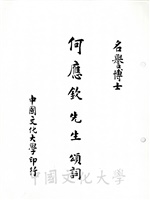 名譽博士
何應欽先生頌詞
中國文化大學印行
中國文化大學